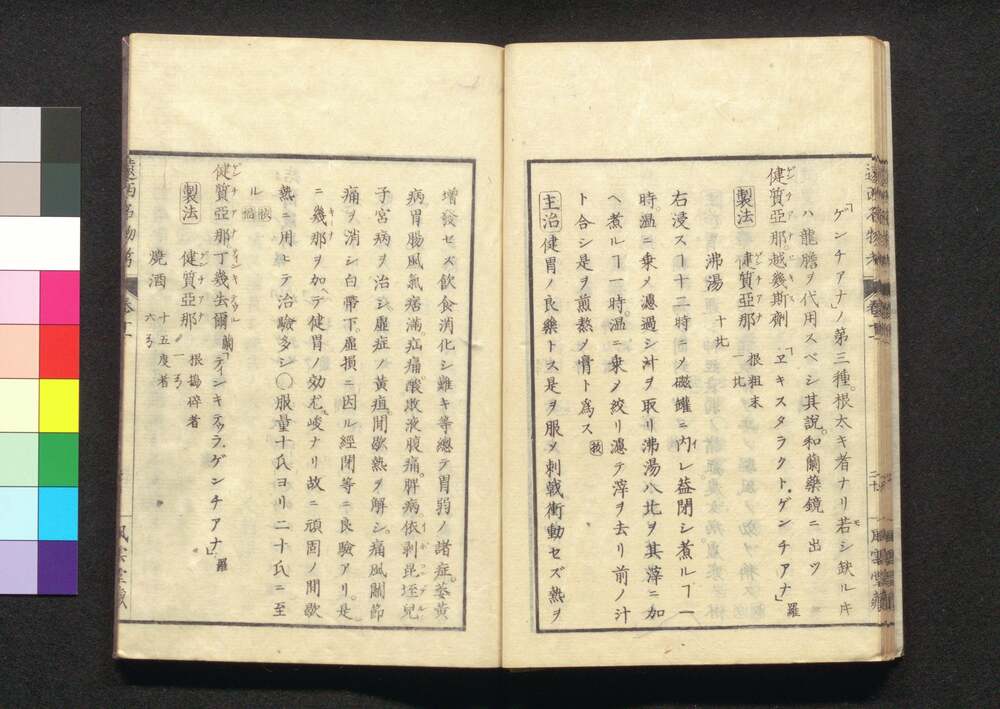 「ゲンチアナ」ノ第三種。根太キ者ナリ若シ缺ルキ
ハ龍膽ヲ代用スベシ其説。和蘭藥鏡ニ出ツ
健質亞那越幾斯劑 「ヱキスタラクト。ゲンチアナ」羅
製法 健質亞那 根粗末 一比
沸湯 十比
右浸スヿ十二時ニメ磁罐ニ内レ葢閉シ煮ルヿ一
時。温ニ乗メ濾過シ汁ヲ取リ沸湯八比ヲ其滓ニ加
ヘ煮ルヿ一時。温ニ乗メ絞リ濾テ滓ヲ去リ前ノ汁
ト合シ是ヲ煎熬メ膏ト爲ス
主治 健胃ノ良藥トス是ヲ服メ刺戟衝動セズ熱ヲ
増發セズ飲食消化シ難キ等總テ胃弱ノ諸症。萎黄
病。胃腸風氣痞滿疝痛。酸敗液腹痛。脾病。依剥昆垤兒
子宮病ヲ治シ虚症ノ黄疸。間歇熱ヲ解シ。痛風關節
痛ヲ消シ白帶下。虚損ニ因ル經閉等ニ良驗アリ。是
ニ幾那ヲ加ヘテ健胃ノ効尤峻ナリ故ニ頑固ノ間歇
熱ニ用ヒテ治驗多シ〇服量十氏ヨリ二十氏ニ至
ル
健質亞那丁幾去爾 蘭「ティンキテュラ。ゲンチアナ」羅
製法 健質亞那 根搗碎者 一ヲ
燒酒 十五度者 六ヲ